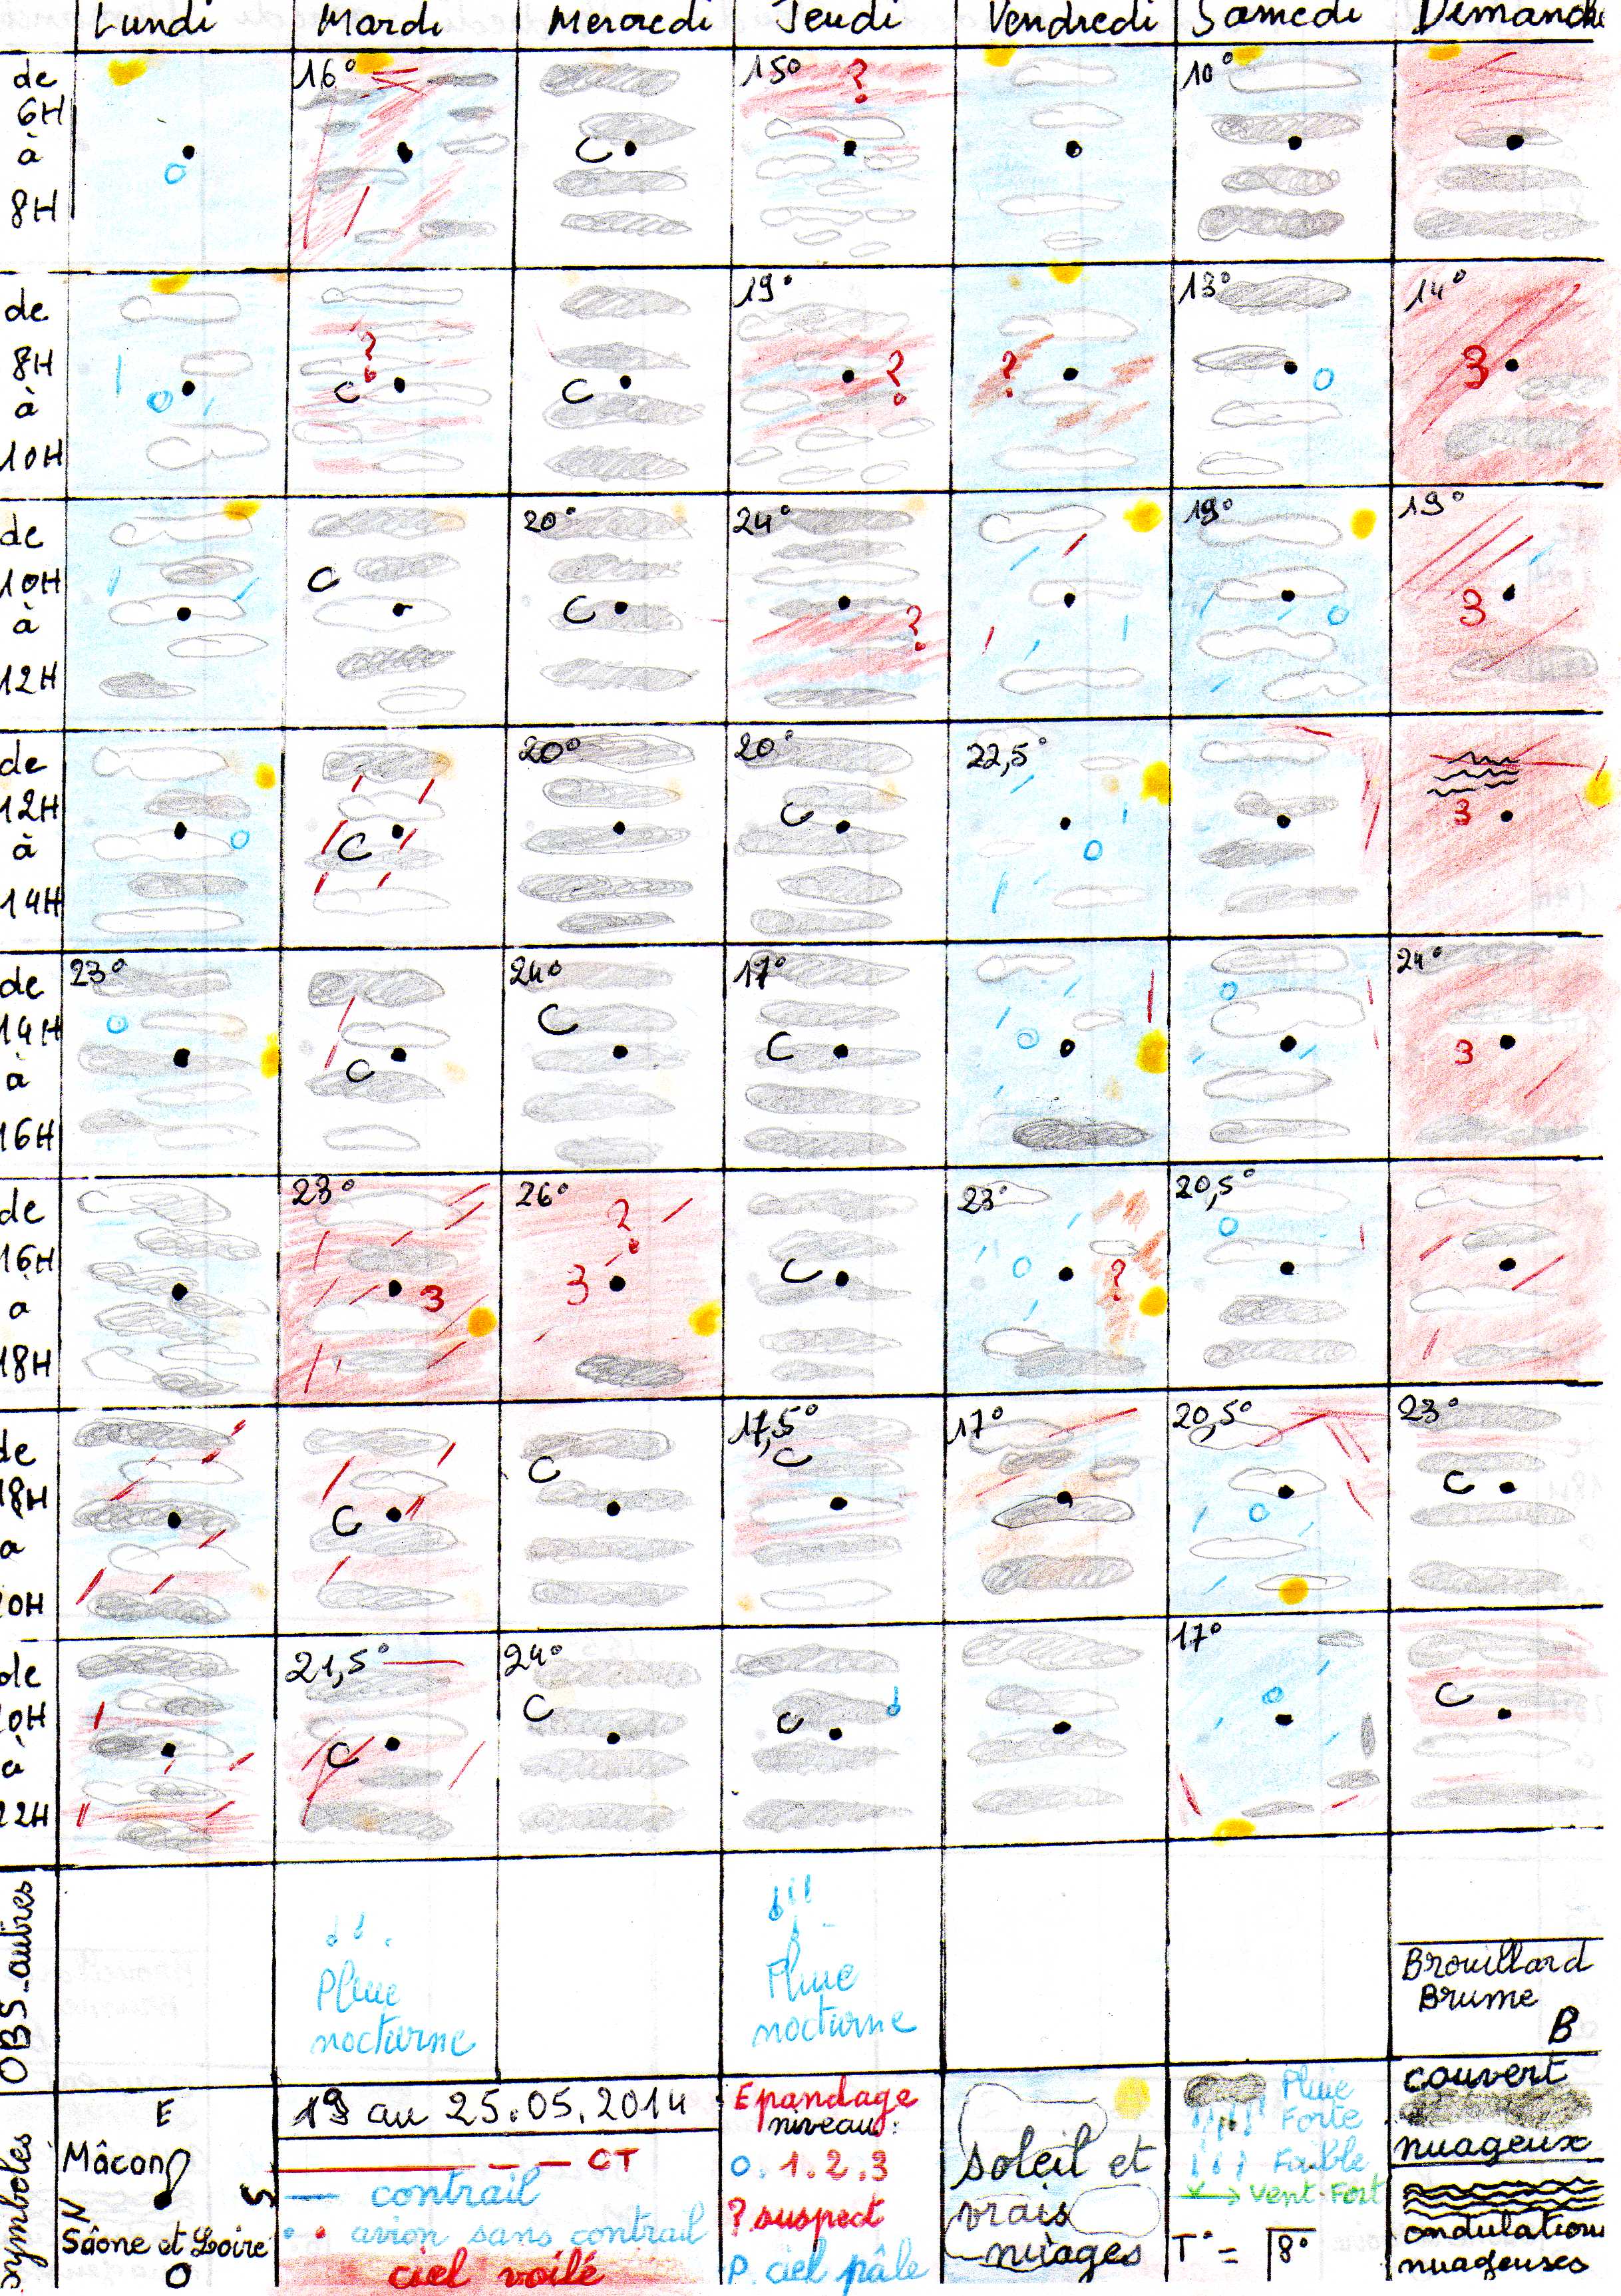 Lundi Mardi Mercredi Jeudi Vendredi Samedi Dimanche
de 6H à 8H
16°
C
15°
?
10°
de 8H à 10H
?
C
C
19°
?
?
13°
14°
3
de 10H à 12H
C
20°
C
24°
?
19°
19°
3
de 12H à 14H
C
20°
20°
C
22,5°
3
de 14H à 16H
23°
C
24°
C
17°
C
24°
3
de 16H a 18H
23°
3
26°
?
3
C
23°
?
20,5°
de 18H a 20H
C
C
17,5°
C
17°
20,5°
23°
C
de 20H à 22H
21,5°
C
24°
C
C
17°
C
OBS. autres
Pluie
nocturne
Pluie
nocturne
Brouillard
Brume
B
symboles
E
Mâcon
N
S
Sâone et Loire
O
19 au 25.05.2014
CT
contrail
avion sans contrail
ciel voilé
Epandage
niveau:
0.1.2.3
? suspect
P. ciel pâle
Soleil et
vrais
nuages
Pluie
Forte
Faible
Vent Fort
T° = 8°
couvert
nuageux
ondulations
nuageuses